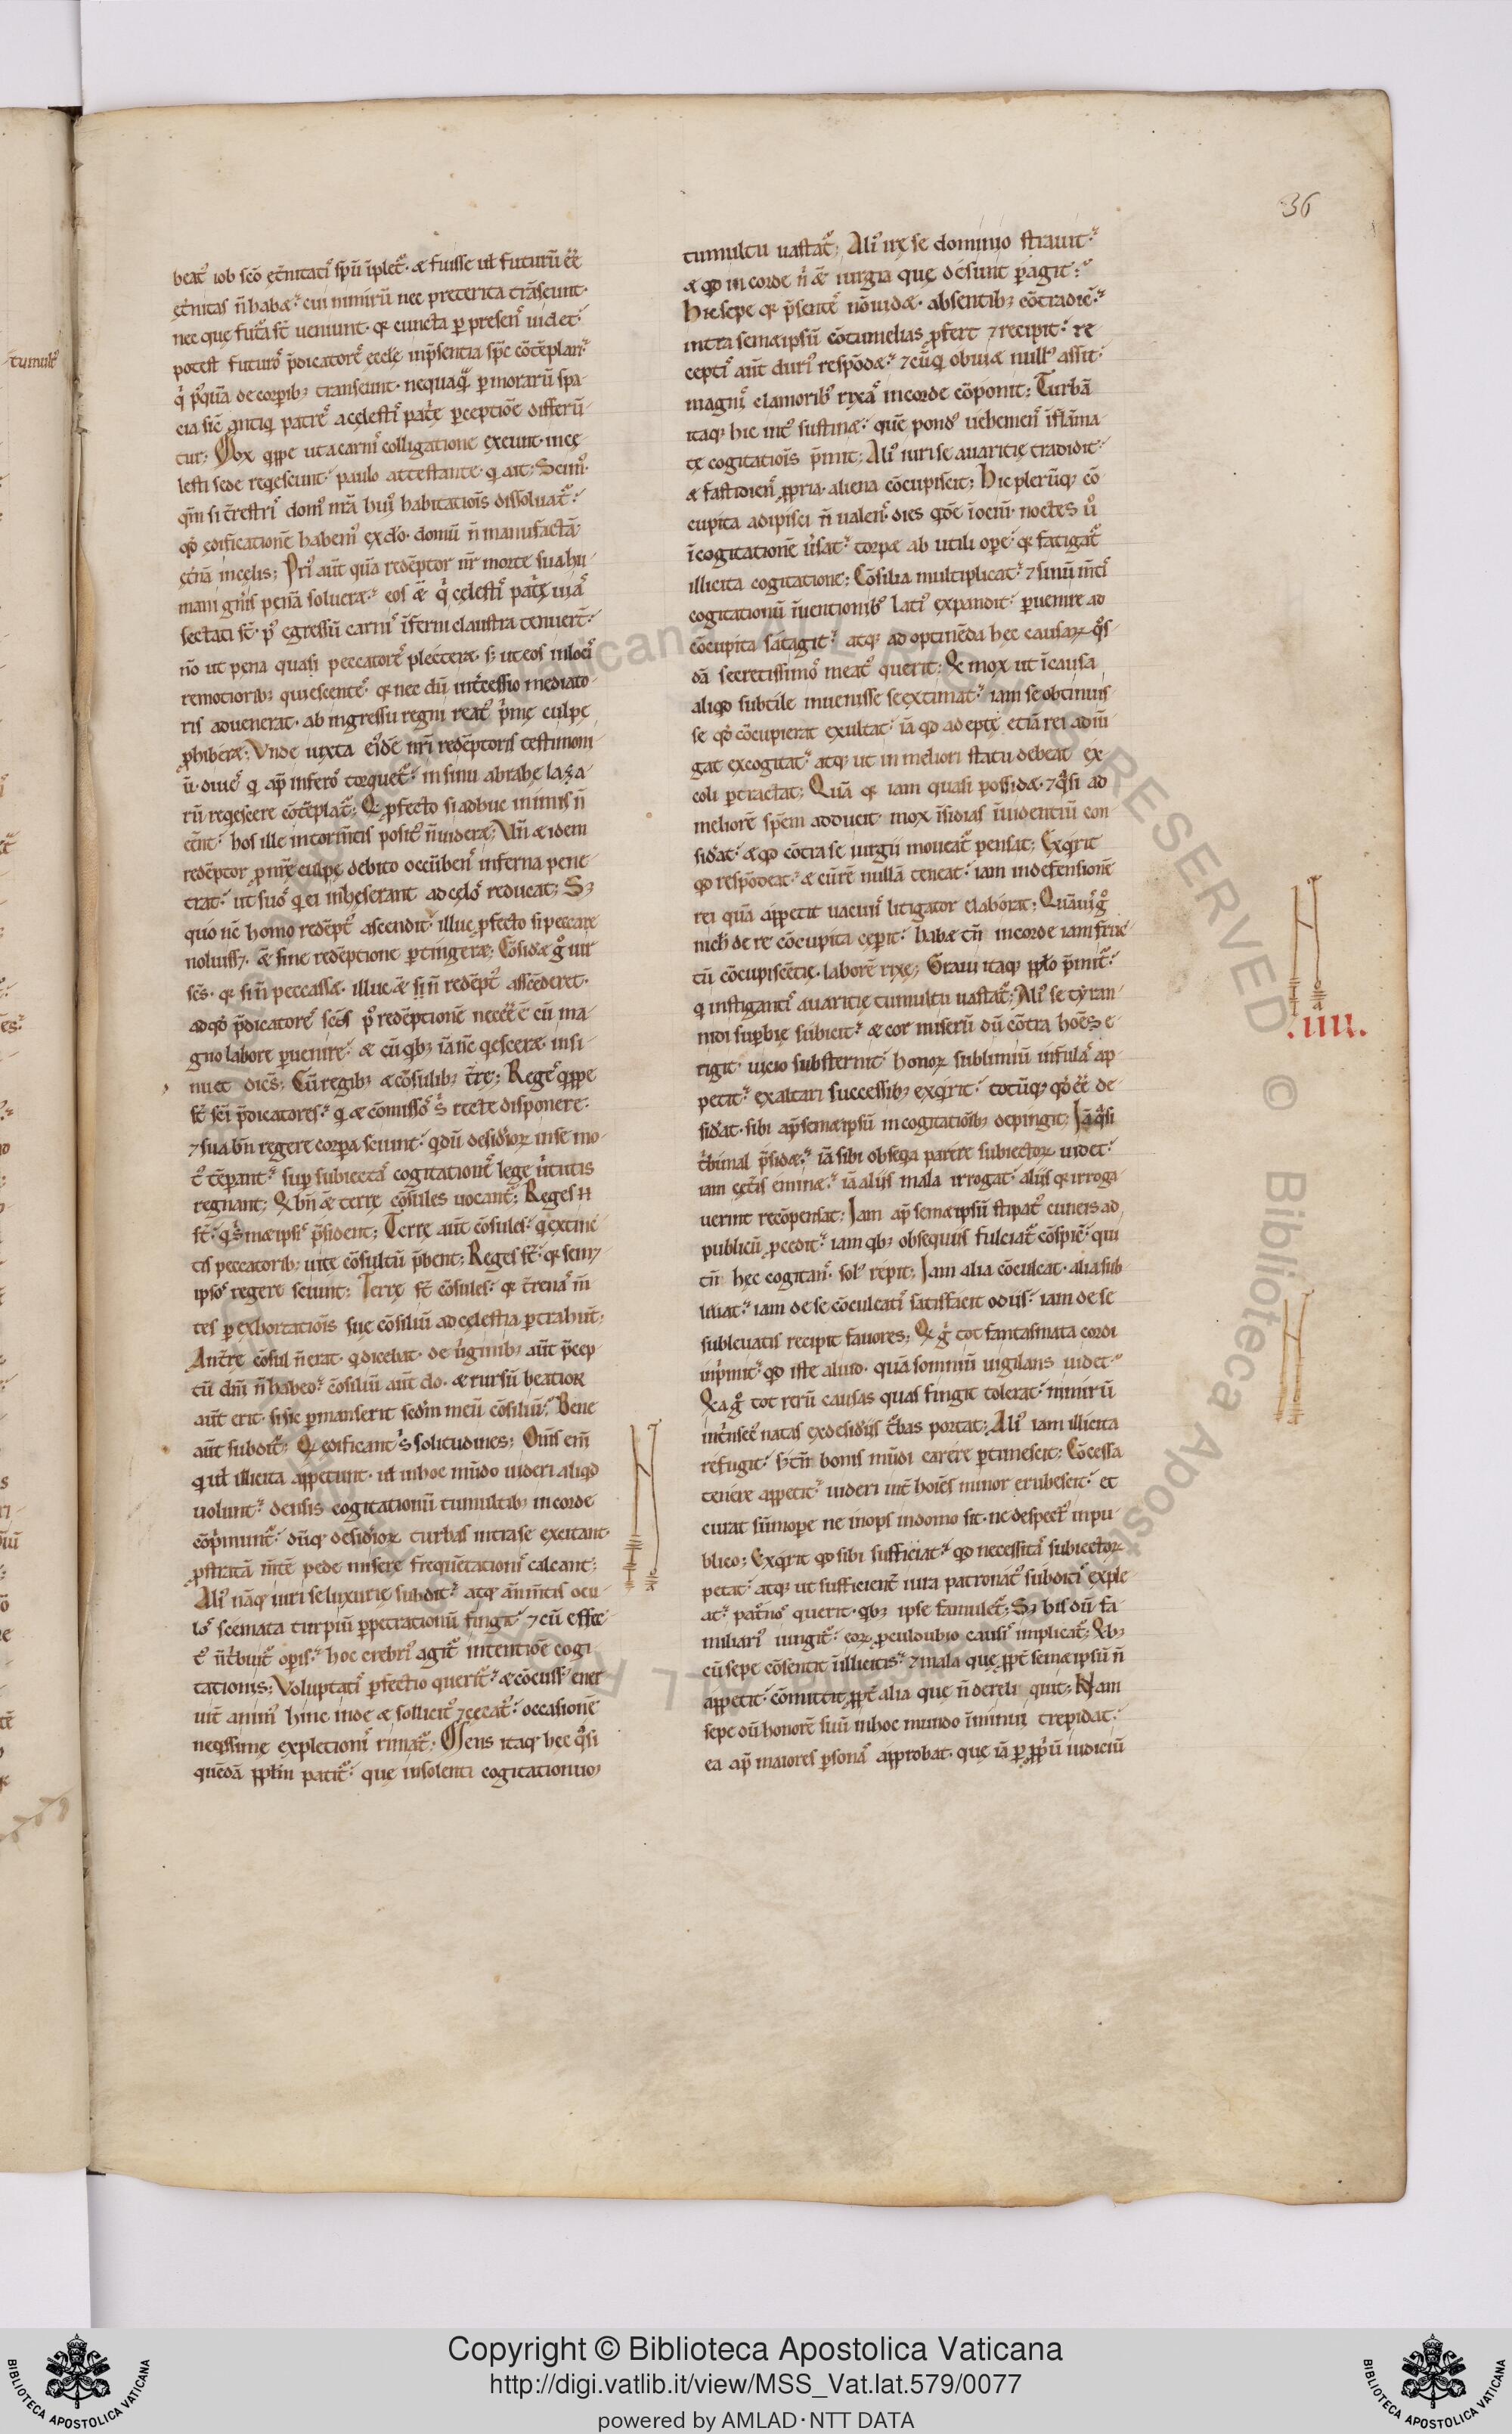 36
tumult᷒
beat᷒ iob scō ęt̄nitati᷒ sp̄ū īplet᷒· ⁊ fuisse ul̄ futurū ēē
ęt̄nitas n̄ habet᷒ cui nimirū nec preterita trāseunt·
nec que futa᷒ st̄ ueniunt· q̨ cuncta ꝑ presen᷒ uidet·
potest futuro᷒ p̄dicatore᷒ eccle inp̄sentia spe cōtēplari᷒
q᷒ p᷒quā de corpib; transeunt· nequaq̄ ꝑ morarū spa-
cia sic̄ antiq̨ patre᷒ a cęlesti᷒ pat̄e ꝑceptiōe differū-
tur; Mox q̨ppe ut a carni᷒ colligatione exeunt· in cę-
lesti sede reqescunt· paulo attestante· q̨ ait; Scim᷒·
qm̄ si t̄restri᷒ dom᷒ nr̄a hui᷒ habitatiōis dissoluat᷒·
qd᷒ ędificationē habem᷒ ex do· domū n̄ manufactā·
ęt̄nā in cęlis; Pri᷒ aut̄ quā redēptor nr̄ morte sua hu-
mani gn̄is penā solueret᷒· eos ⁊ q᷒ cęlesti᷒ pat̄ę uia᷒
sectati st̄· p᷒ egressū carni᷒ īferni claustra tenuer̄t·
nō ut pena quasi peccatore᷒ plecteret· s; ut eos in loci᷒
remotiorib; quiescente᷒ q̨ nec dū int̄cessio mediato-
ris aduenerat· ab ingressu regni reat᷒ p̄mę culpę
ꝓhiberet; Vnde iuxta ei᷒dē nr̄i redēptoris testimoni-
ū· diue᷒ q̨ ap̄ infero᷒ torquet᷒· in sinu abrahę laza-
rū reqescere cōtēplat᷒; Q̨ ꝓfecto si adhuc in imis n̄
eēnt· hos ille in torm̄tis posit᷒ n̄ uideret; Vn̄ ⁊ idem
redēptor ꝓ nr̄ę culpę debito occūben᷒ inferna pene-
trat· ut suo᷒ q̨ ei inheserant ad cęlo᷒ reducat; S;
quo nc̄ homo redēpt᷒ ascendit· illuc ꝓfecto si peccare
noluiss;· ⁊ sine redēptione ꝑtingeret; Cōsidet g᷒ uir
scs̄· q̨ si n̄ peccasset· illuc ⁊ si n̄ redēpt᷒ ascēderet·
ad qd᷒ p̄dicatore᷒ scōs p᷒ redēptionē necēē ē cū ma-
gno labore ꝑuenire· ⁊ cū qb; iā nc̄ qesceret· insi-
nuet dicēs; Cū regib; ⁊ cōsulib; t̄re; Rege᷒ q̨ppe
st̄ sc̄i p̄dicatores᷒· q̨ ⁊ cōmisso᷒ s᷒ recte disponere·
⁊ sua bn̄ regere corpa sciunt· q̨ dū desidioꝝ in se mo-
t᷒ tēperant᷒ sup subiecta᷒ cogitatione᷒ lege ūtutis
regnant; Q̨ bn̄ ⁊ terre cōsules uocant᷒; Reges n̄
st̄· q̨ s᷒metipsi᷒ p̄sident; Terrę aut̄ cōsules· q̨ extinc-
tis peccatorib; uite cōsultū p̄bent; Reges st̄ q̨ sem;-
ipso᷒ regere sciunt; Terrę st̄ cōsules· q̨ t̄rena᷒ m̄-
tes ꝑ exhortatiōis sue cōsiliū ad cęlestia ꝑtrahūt;
An t̄re cōsul n̄ erat· q̨ dicebat· de ūginib; aut̄ p̄cep-
tū dn̄i n̄ habeo᷒· cōsiliū aut̄ do· ⁊ rursū beatior
aut̄ erit· si sic ꝑmanserit scdm meū cōsiliū; Bene
aut̄ subdit᷒; Q̨ ędificant s᷒ solitudines; Om̄s em̄
q̨ ul̄ illicita appetunt· ul̄ in hoc mūdo uideri aliqd
uolunt᷒ densis cogitationū tumultib; in corde
cōp̄munt᷒· dūq; desidioꝝ turbas intra se excitant·
ꝓstratā m̄tē pede misere frequētationi᷒ calcant;
Ali᷒ nāq; iuri se luxurię subdit᷒· atq; an̄ m̄tis ocu-
lo᷒ scemata turpiū ꝑpetrationū fingit· ⁊ cū effec-
t᷒ n̄ t̄buit᷒ opis᷒· hoc crebri᷒ agit᷒ intentiōe cogi-
tationis; Voluptati᷒ ꝑfectio querit᷒· ⁊ cōcuss᷒ ener-
uit᷒ anim᷒ hinc inde ⁊ sollicit᷒ ⁊ cęcat᷒· occasionē
neq̨ssime expletioni᷒ rimat᷒; Mens itaq; hec q᷒si
quēdā ppl̄m patit᷒· que insolenti cogitationuꝫ
tumultu uastat᷒; Ali᷒ irę se dominio strauit᷒·
⁊ qd in corde n᷒ ⁊ iurgia quę desunt ꝑagit·
Hic sepe q̨ p̄sente᷒ nō uidet· absentib; cōtradic᷒·
intra semetipsū cōtumelias ꝓfert ⁊ recipit· re-
cepti᷒ aut̄ duri᷒ respōdet᷒· ⁊ cū q̨ obuiet null᷒ assit·
magni᷒ clamorib᷒ rixa᷒ in corde cōponit; Turbā
itaq; hic int᷒ sustinet· quē pond᷒ uehemen᷒ īflāma-
tę cogitatiōis p̄mit; Ali᷒ iuri se auaritię tradidit·
⁊ fastidien᷒ ꝓpria· aliena cōcupiscit; Hic plerūq; cō-
cupita adipisci n̄ ualen᷒· dies qdē ī ociū· noctes u᷒
ī cogitationē ūsat᷒· torpet ab utili ope· q̨ fatigat᷒
illicita cogitatione; Cōsilia multiplicat᷒· ⁊ sinū m̄ti᷒
cogitationū īuentionib᷒ lati᷒ expandit· ꝑuenire ad
cōcupita satagit᷒· atq; ad optinēda hec causaꝝ q᷒s-
dā secretissimo᷒ meat᷒ querit; Q̨ mox ut ī causa
aliqd subtile inuenisse se extimat᷒· iam se obtinuis-
se qd᷒ cōcupierat exultat· iā qd adeptę etiā rei adiū-
gat excogitat᷒· atq; ut in meliori statu debeat ex-
coli ꝑtractat; Quā q̨ iam quasi possidet· ⁊ q᷒si ad
meliorē spēm adducit· mox īsidias īuidentiū con-
sid̄at· ⁊ qd cōtra se iurgii moueat᷒ pensat; Exq̨rit
qd respōdeat᷒· ⁊ cū rē nullā teneat· iam in defensionē
rei quā appetit uacuu᷒ litigator elaborat; Quāuis᷒ g᷒
nich᷒ de re cōcupita cepit· habet tn̄ in corde iam fruc-
tū cōcupiscētię· laborē rixę; Graui itaq; pplo p̄mit᷒·
q̨ instiganti᷒ auaritię tumultu uastat᷒; Ali᷒ se tyran-
nidi supbię subicit᷒· ⁊ cor miserū dū cōtra hoēs e-
rigit· uicio substernit· honoꝝ sublimiū infula᷒ ap-
petit᷒· exaltari successib; exq̨rit· totūq; qd᷒ ēē de-
siderat· sibi ap̄ semetipsū in cogitatiōib; depingit; Iā q᷒si
t̄bunal p̄sidet᷒· iā sibi obseq̨a parere subiectoꝝ uidet·
iam cęt̄is eminet᷒· iā aliis mala irrogat· aliis q̨ irroga-
uerint recōpensat; Iam ap̄ semetipsū stipat᷒ cuneis ad
publicū ꝓcedit᷒· iam qb; obsequiis fulciat᷒ cōspic᷒· qui
tn̄ hec cogitan᷒· sol᷒ repit; Iam alia cōculcat· alia sub-
leuat᷒· iam de se cōculcati᷒ satisfacit odiis᷒· iam de se
subleuatis recipit fauores; Q̨ g᷒ tot fantasmata cordi
inp̄mit᷒· qd iste aliud· quā somniū uigilans uidet·
Q̨ ea g᷒ tot rerū causas quas fingit tolerat· nimirū
int̄nsec᷒ natas ex desidiis t᷒bas portat; Ali᷒ iam illicita
refugit· s; tn̄ bonis mūdi carere ꝑtimescit; Cōcessa
tenere appetit᷒· uideri int̄ hoīes minor erubescit· et
curat sūmope ne inops in domo sit· ne despect᷒ in pu-
blico; Exq̨rit qd sibi sufficiat᷒· qd necessita᷒ subiectoꝝ
petat· atq; ut sufficient̄ iura patronat᷒ subditi᷒ exple-
at᷒· pat̄no᷒ querit· qb; ipse famulet᷒; S; his dū fa-
miliari᷒ iungit᷒· eoꝝ ꝓculdubio causi᷒ implicat᷒; Qb;
cū sepe cōsentit īllicitis᷒· ⁊ mala quę ꝓpt̄ semetipsū n̄
appetit· cōmittit ꝓpt̄ alia que n̄ dereliquit; Nam
sepe dū honorē suū in hoc mundo īminui trepidat·
ea ap̄ maiores ꝑsona᷒ approbat· que iā ꝑ ꝓpriū iudiciū
.IIII.
Copyright © Biblioteca Apostolica Vaticana
http://digi.vatlib.it/view/MSS_Vat.lat.579/0077
powered by AMLAD·NTT DATA
BIBLIOTECA APOSTOLICA VATICANA
BIBLIOTECA APOSTOLICA VATICANA